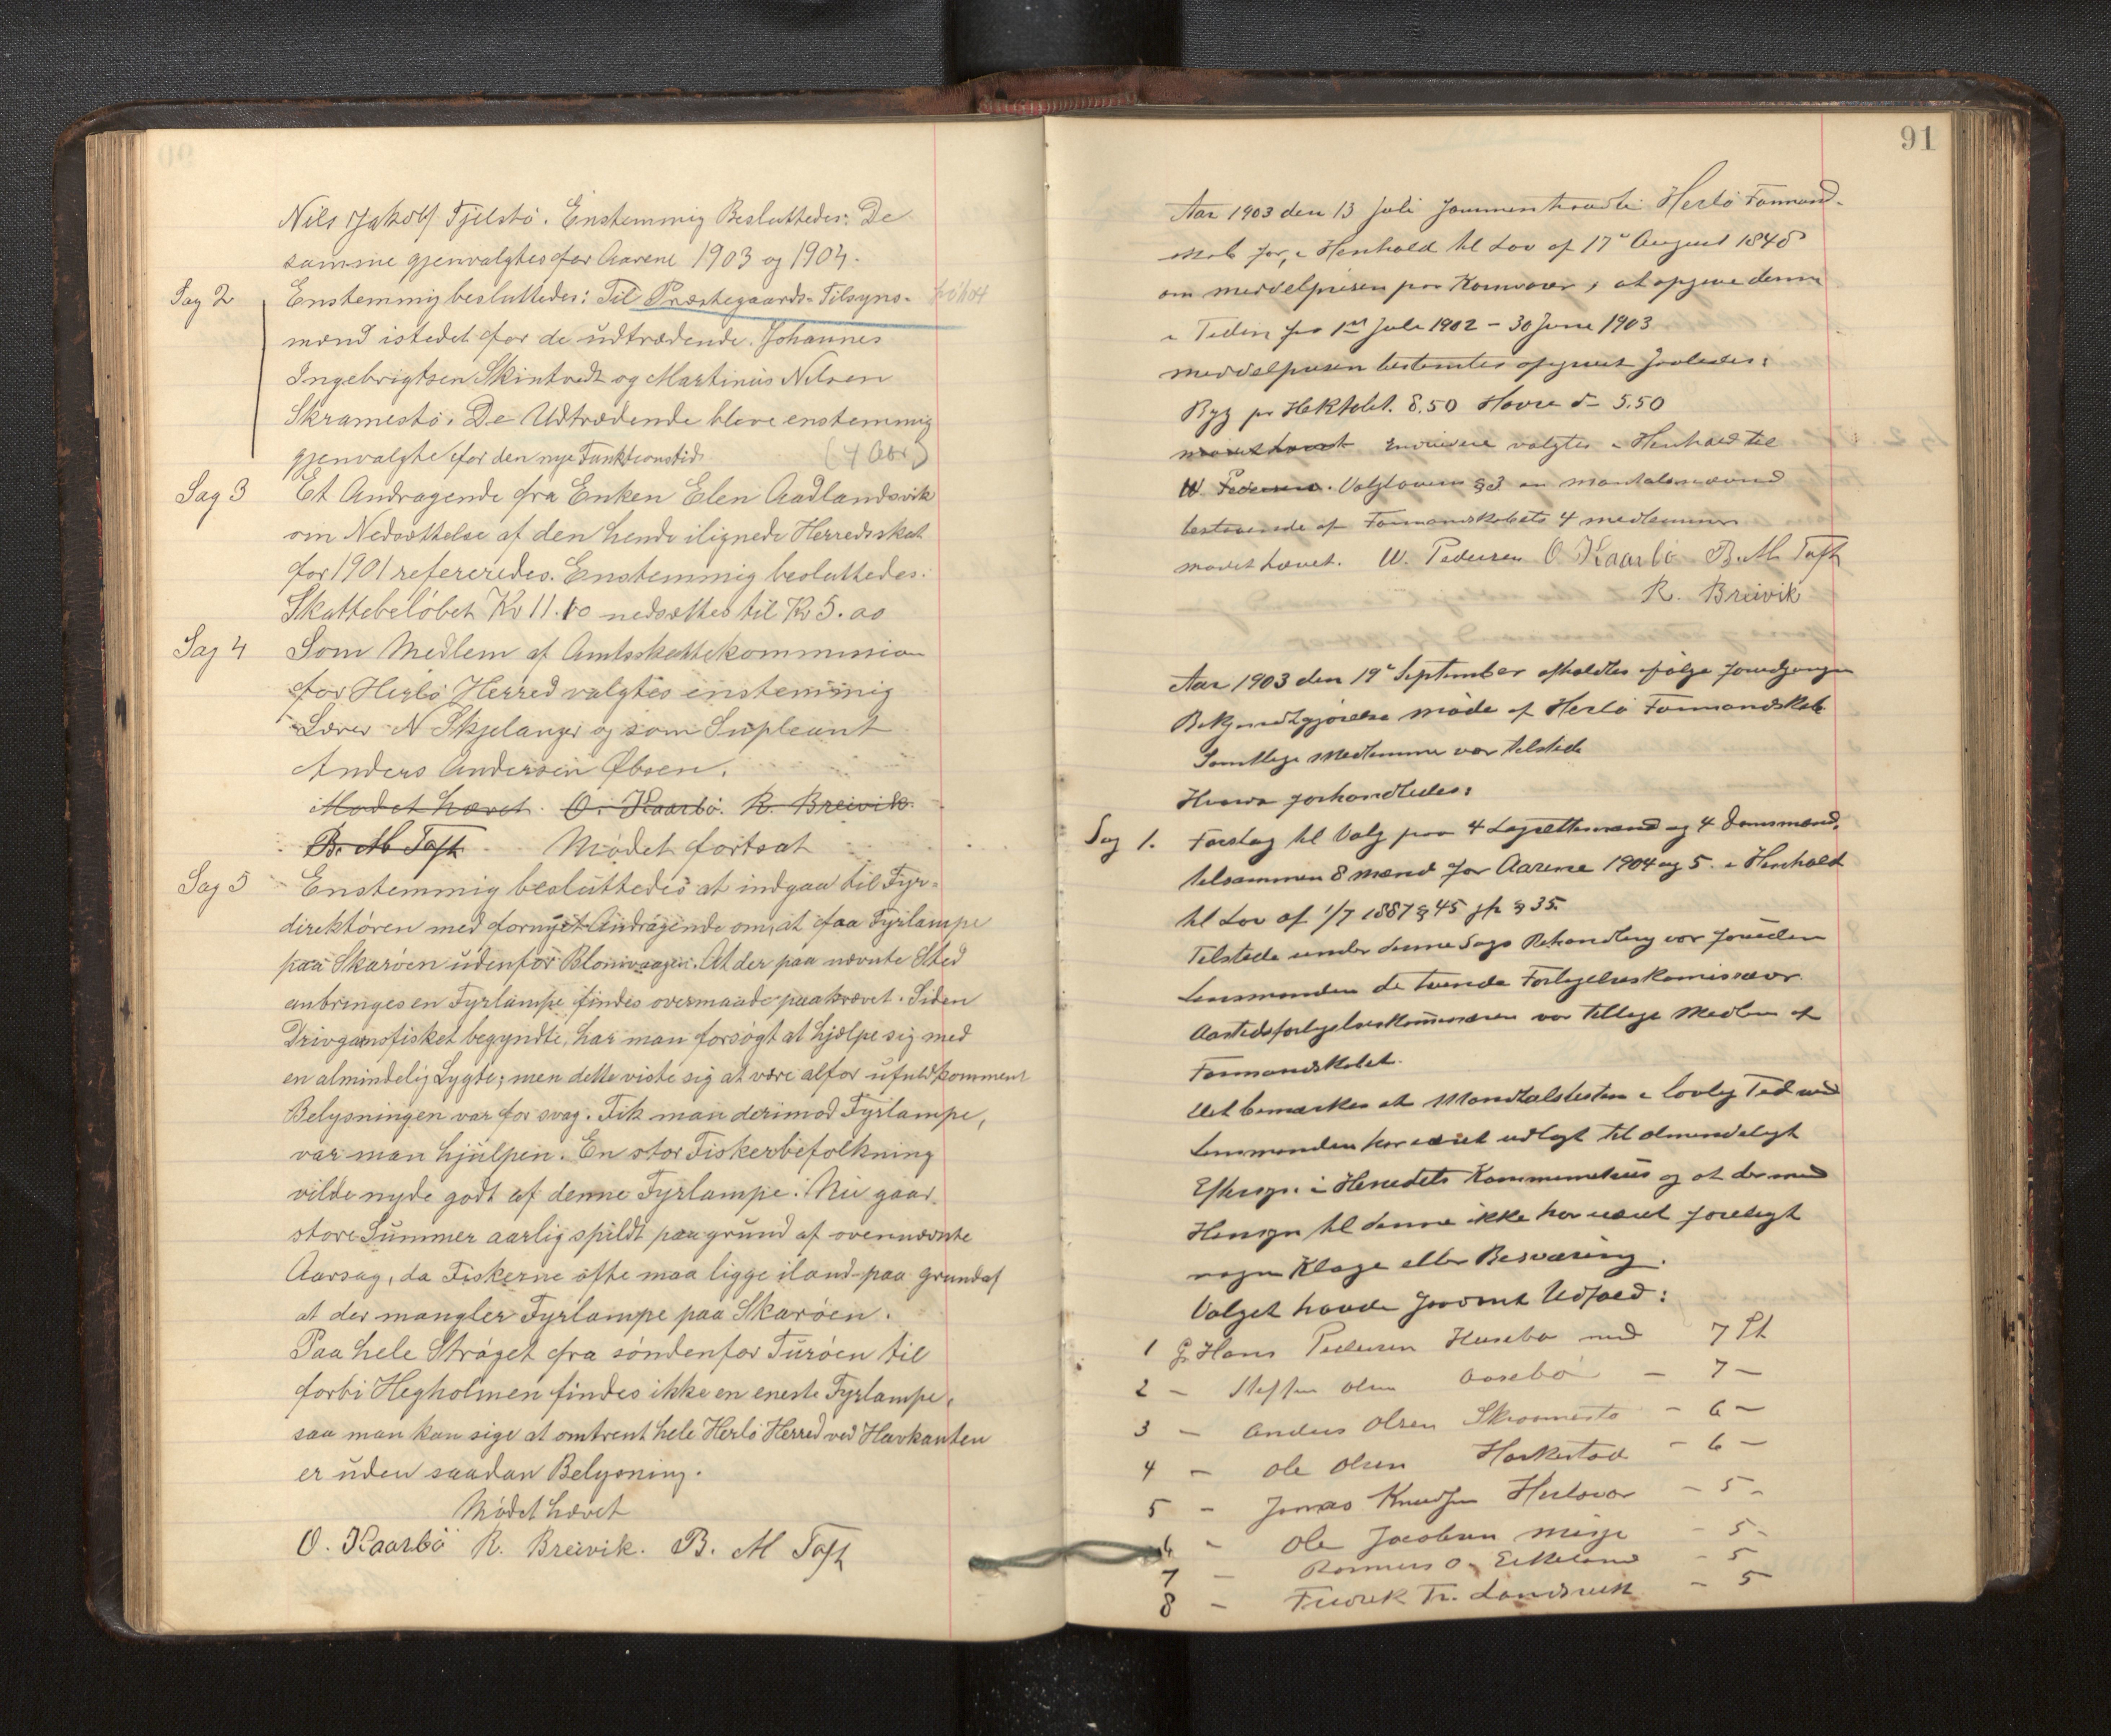 Nils Jakobs Fjelstö. Enstemmig Besluttedes: De
samme gjenvalgtes for Aarene 1903 og 1904.
Sag 2 Enstemmig besluttedes: Til Præstegaards-Tilsyns-
mænd istedet for de udtrædende Johannes
Ingebrigtsen Skintvedt og Martinus Nilsen
Skramestö. De Udtrædende bleve enstemmig
gjenvalgte for den nye Funktionstid. (4 Aar)
Sag 3 Et Andragende fra Enken Elen Aadlandsvik
om Nedsættelse af den hende ilignede Herredsskat
for 1901 refereredes. Enstemmig besluttedes:
Skattebelöbet Kr 11.10 nedsættes til Kr 5.00
Sag 4 Som Medlem af Amtsskattekommission
for Herlö Herred valgtes enstemmig
Lærer N Skjelanger og som Supleant
Anders Andersen Øbsen.
Mödet hævet. O. Kaarbö. R. Breivik.
B. M Toft Mödet fortsat
Sag 5 Enstemmig besluttedes at indgaa til Fyr-
direktören med fornyet Andragende om, at faa Fyrlampe
paa Skaröen udenfor Blomvaagen. At der paa nævnte Sted
anbringes en Fyrlampe findes overmaade paakrævet. Siden
Drivgarnsfisket begyndte, har man forsögt at hjælpe sig med
en almindelig Lygte; men dette viste sig at være alfor ufuldkomment
Belysningen var for svag. Fik man derimod Fyrlampe,
var man hjulpen. En stor Fiskerbefolkning
vilde nyde godt af denne Fyrlampe. Nu gaar
store Summer aarlig spildt paa grund af ovennævnte
Aarsag, da Fiskerne ofte maa ligge iland paa grund af
at der mangler Fyrlampe paa Skaröen.
Paa hele Ströget fra söndenfor Turöen til
forbi Hegholmen findes ikke en eneste Fyrlampe,
saa man kan sige at omtrent hele Herlö Herred ved Havkanten
er uden saadan Belysning.
Mödet hævet
O. Kaarbö R. Breivik. B. M Toft
91
Aar 1903 den 13 Juli sammentraadte Herlö Formand-
skab for, i Henhold til Lov af 17de August 1848
om middelprisen paa Kornvarer, at opgive denne
i Tiden fra 1ste Juli 1902 - 30 Juni 1903
Middelprisen bestemtes opgivet saaledes:
Byg pr Hektolit. 8.50 Havre do 5.50
mödet hævet Endvidere valgtes i Henhold til
W. Pedersen. Valglovens § 3 en mantalsnævnd
bestaaende af Formandskabets 4 medlemmer
mödet hævet. W. Pedersen O Kaarbö B. M Toft
R. Breivik
Aar 1903 den 19de September afholdtes ifölge foregaaende
Bekjendtgjörelse möde af Herlö Formandskab
Samtlige Medlemmer var tilstede
Hvorda forhandledes:
Sag 1. Forslag til Valg paa 4 Lagrettemænd og 4 Domsmænd,
tilsammen 8 Mænd for Aarene 1904 og 5. i Henhold
til Lov af 1/7 1887 § 45 jfr § 35.
Tilstede under denne Sags Behandling var foruden
Lensmanden de tvende Forligelseskomissærer.
Aastedsforligelseskommissæren var tillige Medlem af
Formandskabet.
Det bemærkes at Mandtalslisten i lovlig Tid ved
Lensmanden har været udlagt til almindeligt
Eftersyn i Herredets Kommunehus og at der med
Hensyn til denne ikke har været forelagt
nogen Klage eller Besværing.
Valget havde saadant Udfald:
1 G. Hans Pedersen Husebö med 7 St
2 - Steffen Olsen Aasebö - 7 -
3 - Anders Olsen Skramestö - 6 -
4 - Ole Olsen Harkestad - 6 -
5 - Jonas Knudsen Herlövær - 5 -
6 - Ole Jacobsen Misje - 5 -
7 - Rasmus O. Eikeland - 5
8 - Fredrik Tr. Landsvik - 5